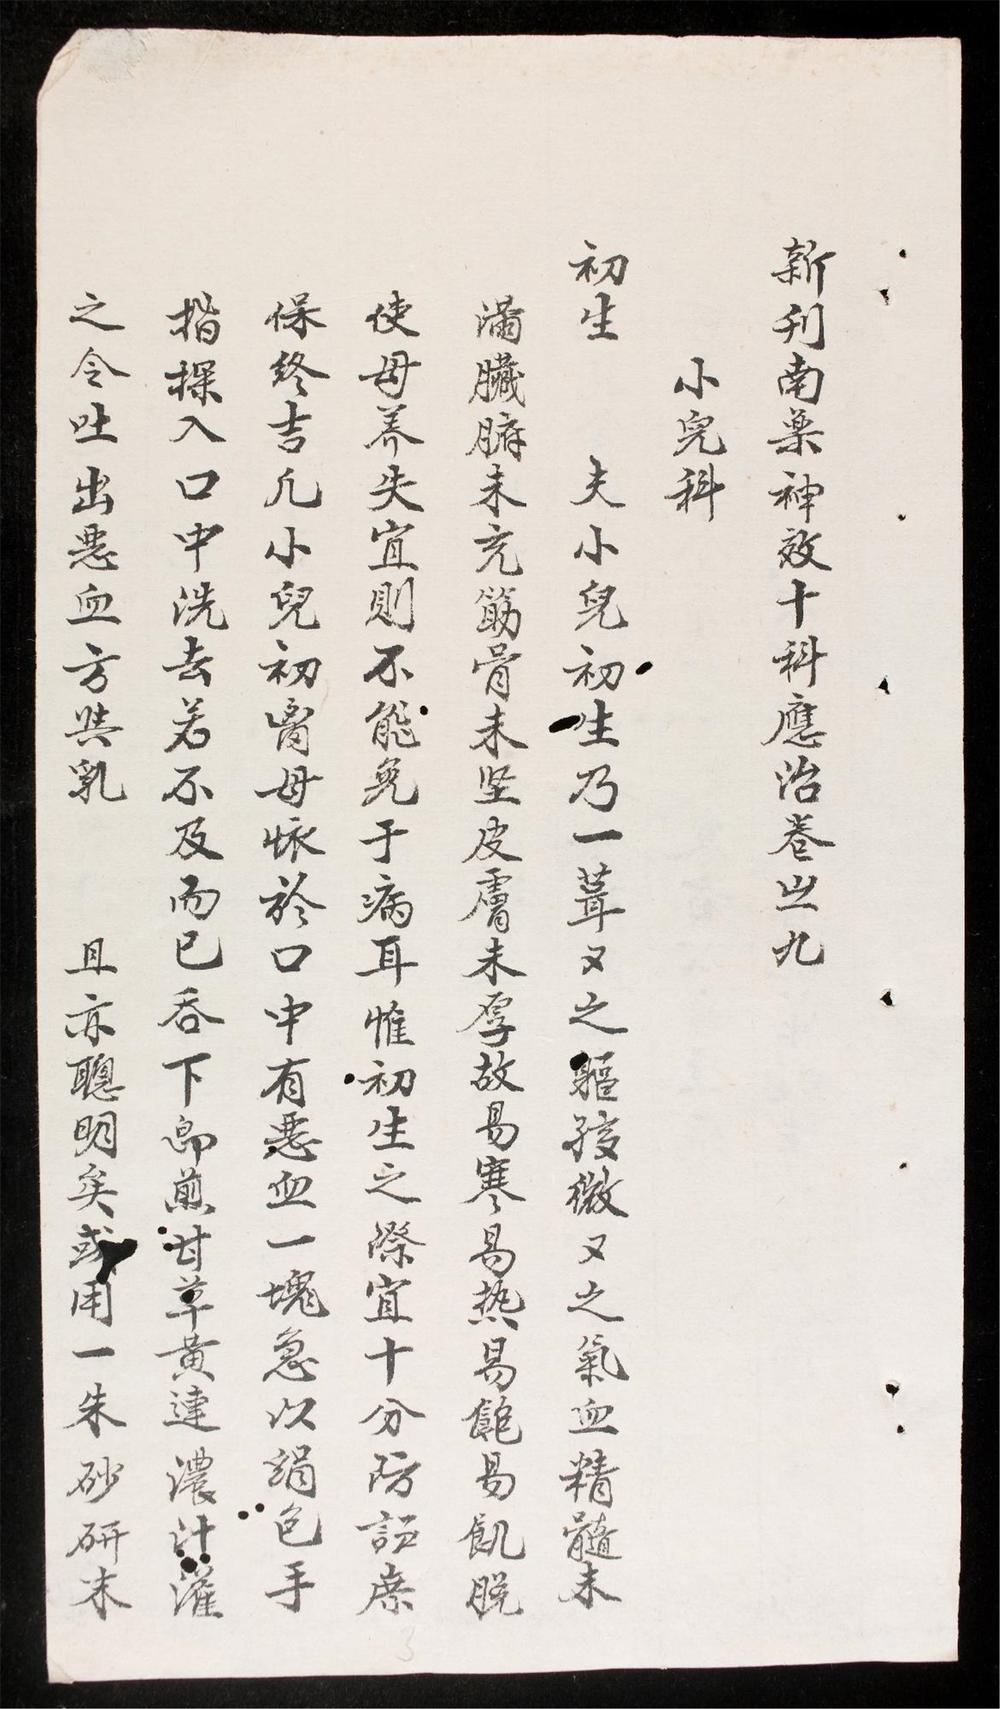 新刊南藥神效十科應治卷之九
小兒科
初生 夫小兒初生乃一葺又之軀孩微又之氣血精髓未
滿臟腑未充筋骨未坚皮膚未厚故易寒易热易飽易飢脱
使母养失宜則不能免于病耳惟初生之際宜十分防詎庶
保終吉凡小兒初胷母怀於口中有惡血一塊急以絹包手
揩探入口中洗去若不及而已吞下即煎甘草黃連濃汁灌
之令吐出惡血方與乳 且亦聰明矣或用一朱砂研末
3